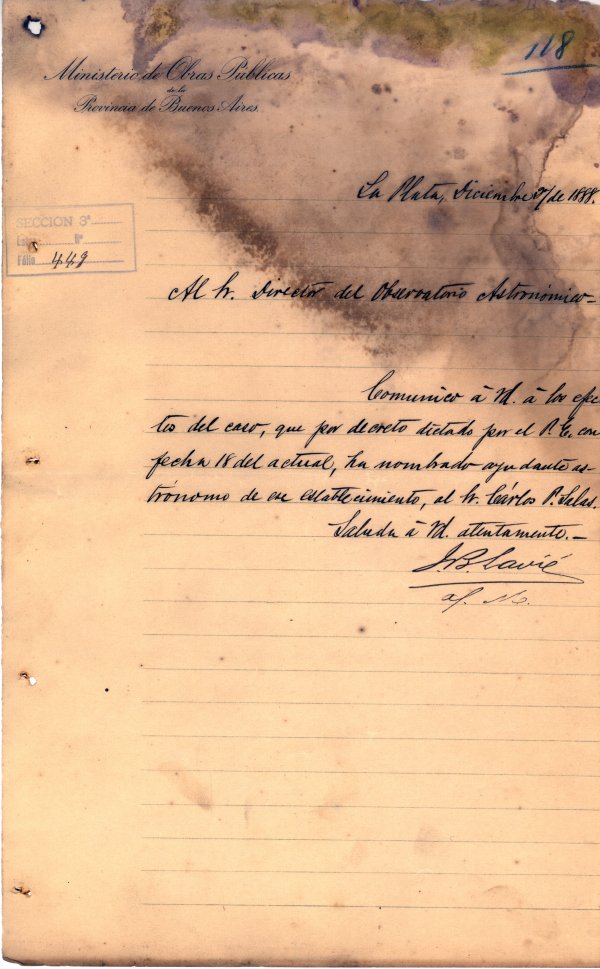 118
Ministerio de Obras Públicas
de la
Provincia de Buenos Aires.
La Plata, Diciembre de 1888.
SECCION 3ª
Letra Nº
Fólio 449
Al Sr. Director del Observatorio Astronómico=
Comunico á Vd. á los efec
tos del caso, que por decreto dictado por el P. E. con
fecha 18 del actual, ha nombrado ayudante as-
trónomo de ese establecimiento, al Sr. Cárlos P. Salas.
Saluda á Vd. atentamente.—